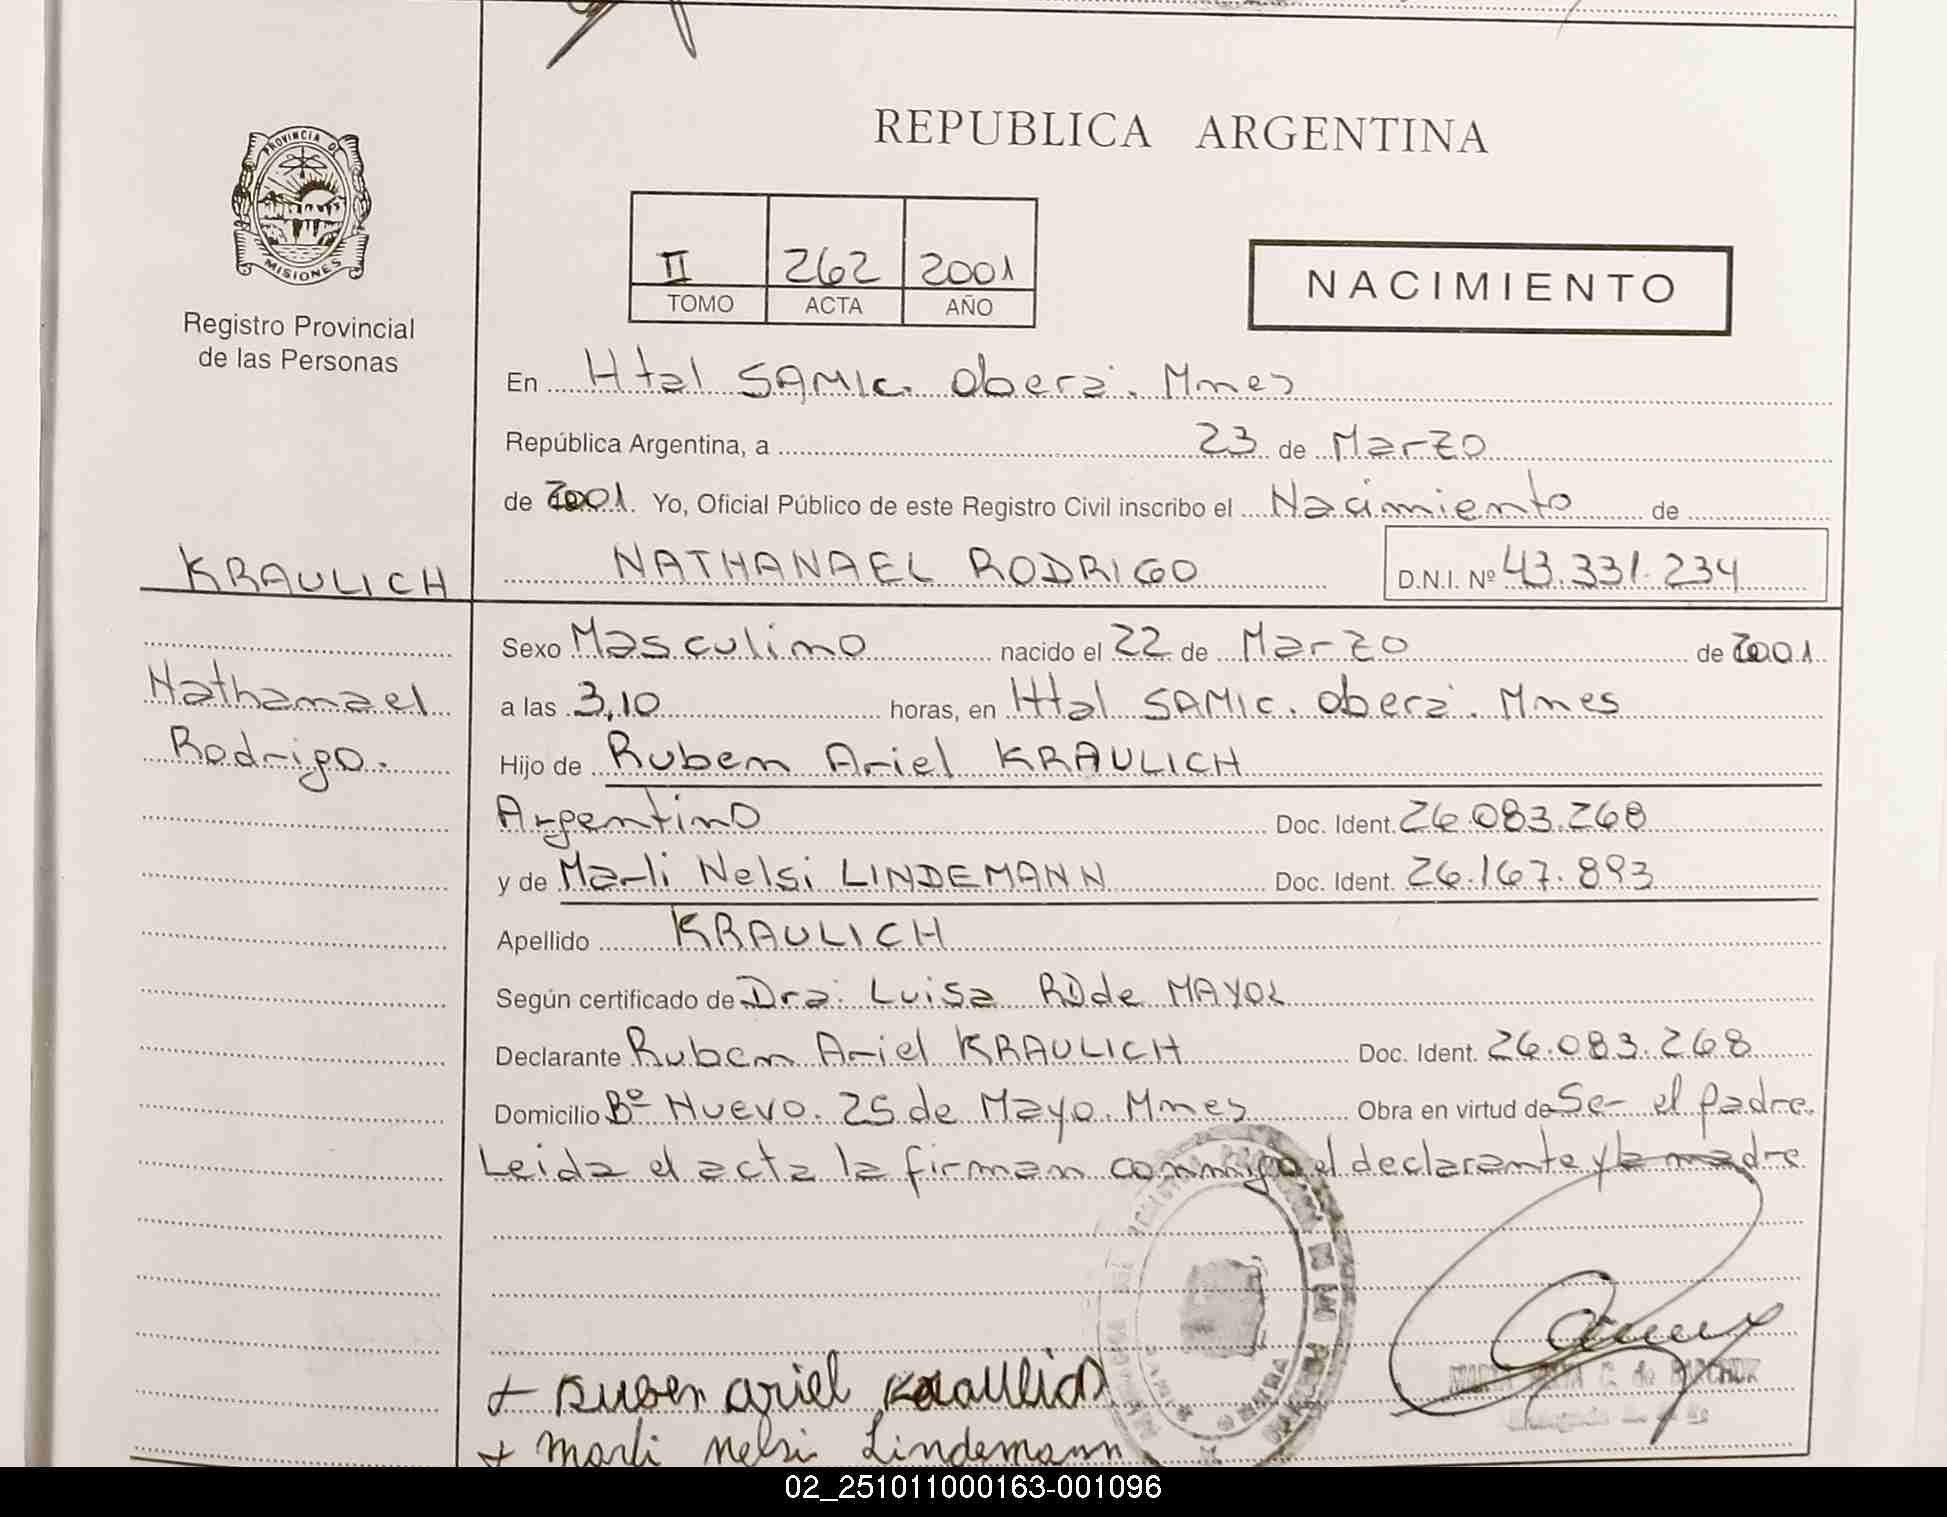 REPUBLICA ARGENTINA
PROVINCIA DE
MISIONES
Registro Provincial
de las Personas
II 262 2001
TOMO ACTA AÑO
NACIMIENTO
En Htal SAMIC. Oberá. Mnes
República Argentina, a 23 de Marzo
de 2001. Yo, Oficial Público de este Registro Civil inscribo el Nacimiento de
KRAULICH NATHANAEL RODRIGO D.N.I. Nº 43.331.234
Sexo Masculino nacido el 22 de Marzo de 2001
Nathanael a las 3,10 horas, en Htal SAMIC. Oberá. Mnes
Rodrigo. Hijo de Ruben Ariel KRAULICH
Argentino Doc. Ident. 26.083.268
y de Marli Nelsi LINDEMANN Doc. Ident. 26.167.893
Apellido KRAULICH
Según certificado de Dra. Luisa R de MAYOL
Declarante Ruben Ariel KRAULICH Doc. Ident. 26.083.268
Domicilio Bº Nuevo. 25 de Mayo. Mnes Obra en virtud de Ser el padre.
Leida el acta la firman conmigo el declarante y la madre
+ Ruben ariel Kraulich
+ marli nelsi Lindemann
02_251011000163-001096